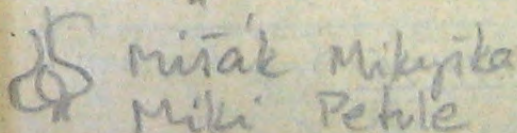 Mišák Mikyška
Miki Petule